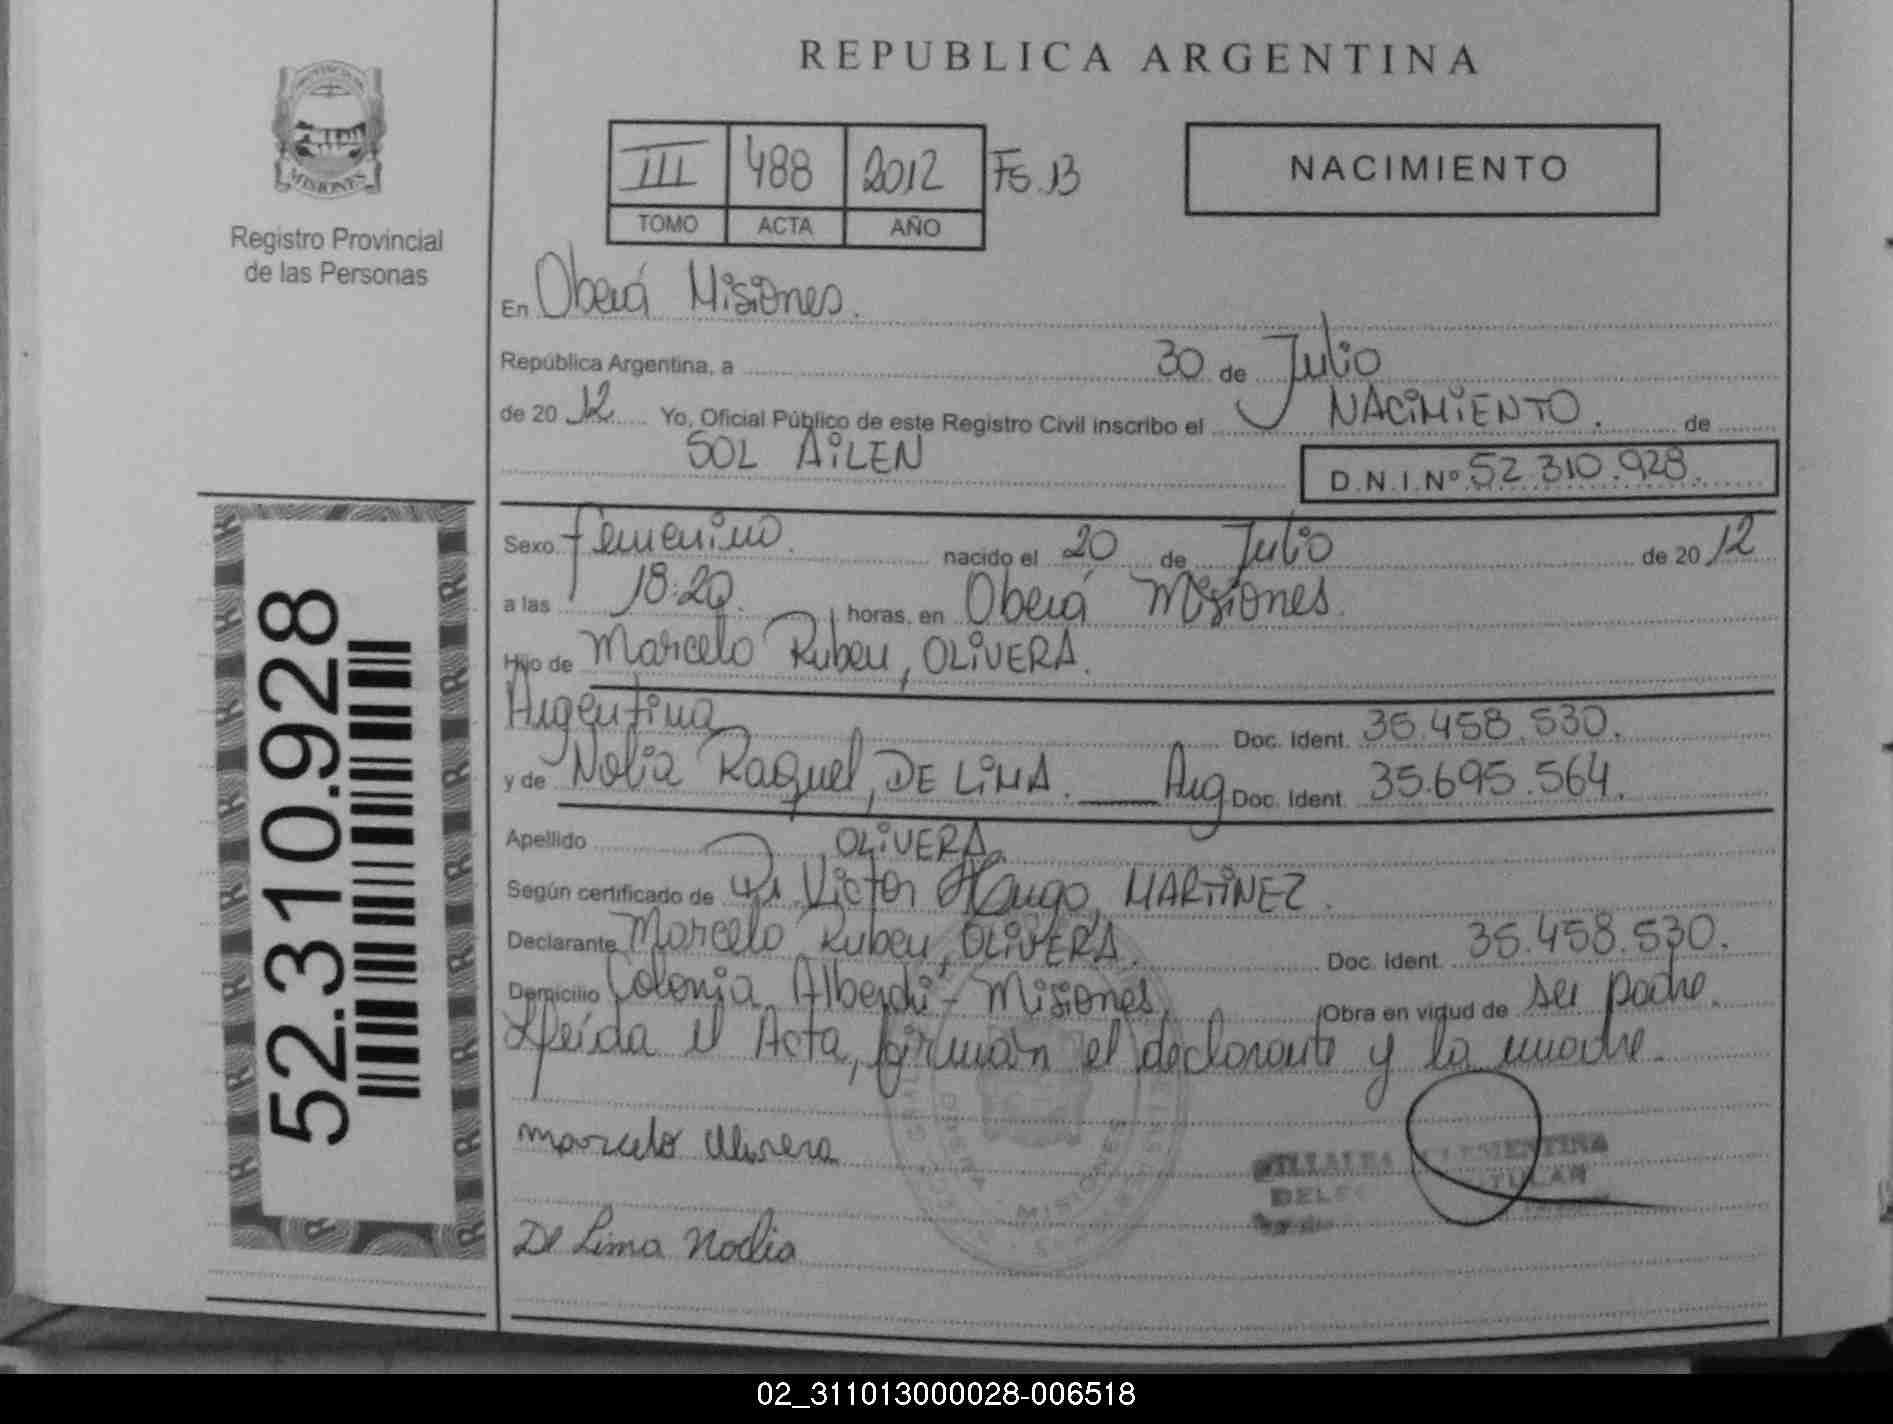 REPUBLICA ARGENTINA
PROVINCIA DE
MISIONES
Registro Provincial
de las Personas
III 488 2012 Fs. 13
TOMO ACTA AÑO
NACIMIENTO
En Oberá Misiones.
República Argentina, a 30 de Julio
de 20 12 Yo, Oficial Público de este Registro Civil inscribo el NACIMIENTO. de
SOL AILEN
D.N.I.Nº 52.310.928.
Sexo femenino. nacido el 20 de Julio de 20 12
a las 18:20. horas, en Oberá Misiones.
Hijo de Marcelo Ruben, OLIVERA.
Argentina Doc. Ident. 35.458.530.
y de Nolia Raquel, DE LIMA. Arg Doc. Ident. 35.695.564.
Apellido OLIVERA.
Según certificado de Dr. Victor Hugo, MARTINEZ.
Declarante Marcelo Ruben, OLIVERA. Doc. Ident. 35.458.530.
Domicilio Colonia Alberdi - Misiones, Obra en virtud de su padre.
Leída el Acta, firman el declarante y la madre.
marcelo Olivera
VILLALBA CLEMENTINA
TITULAR
MISIONES
De Lima Nodia
52.310.928
02_311013000028-006518